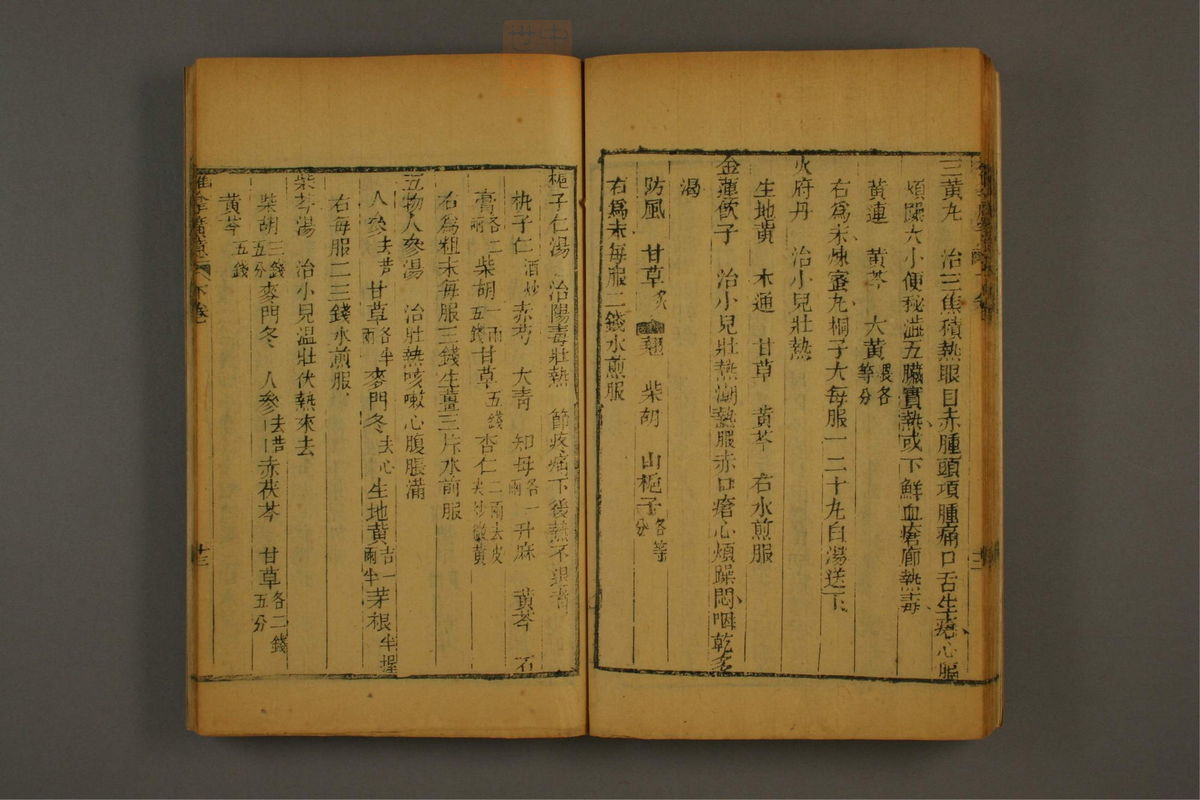 三黃丸　治三焦積熱眼目赤腫頭項腫痛口舌生瘡心膈
煩躁大小便秘澁五臟實熱或下鮮血瘡癤熱毒
黃連　黃芩　大黃煨各等分
右爲末煉蜜丸桐子大每服一二十丸白湯送下
火府丹　治小兒壯熱
生地黃　木通　甘草　黃芩　右水煎服
金蓮飮子　治小兒壯熱潮熱眼赤口瘡心煩躁悶咽乾多
渴
防風　甘草炙　翹　柴胡　山梔子各等分
右爲末每服二錢水煎服
梔子仁湯　治陽毒壯熱　節疼痛下後熱不退者
梔子仁酒炒　赤芍　大青　知母各一兩　升麻　黃芩　石
膏各二兩　柴胡一兩五錢　甘草五錢　杏仁二兩去皮尖炒微黃
右爲粗末每服三錢生薑三片水煎服
五物人參湯　治壯熱咳嗽心腹脹滿
人參去苗　甘草各半兩　麥門冬去心　生地黃各一兩半　茅根半握
右每服二三錢水煎服
柴芩湯　治小兒溫壯伏熱來去
柴胡三錢五分　麥門冬　人參去苗　赤茯苓　甘草各二錢五分
黃芩五錢
下卷